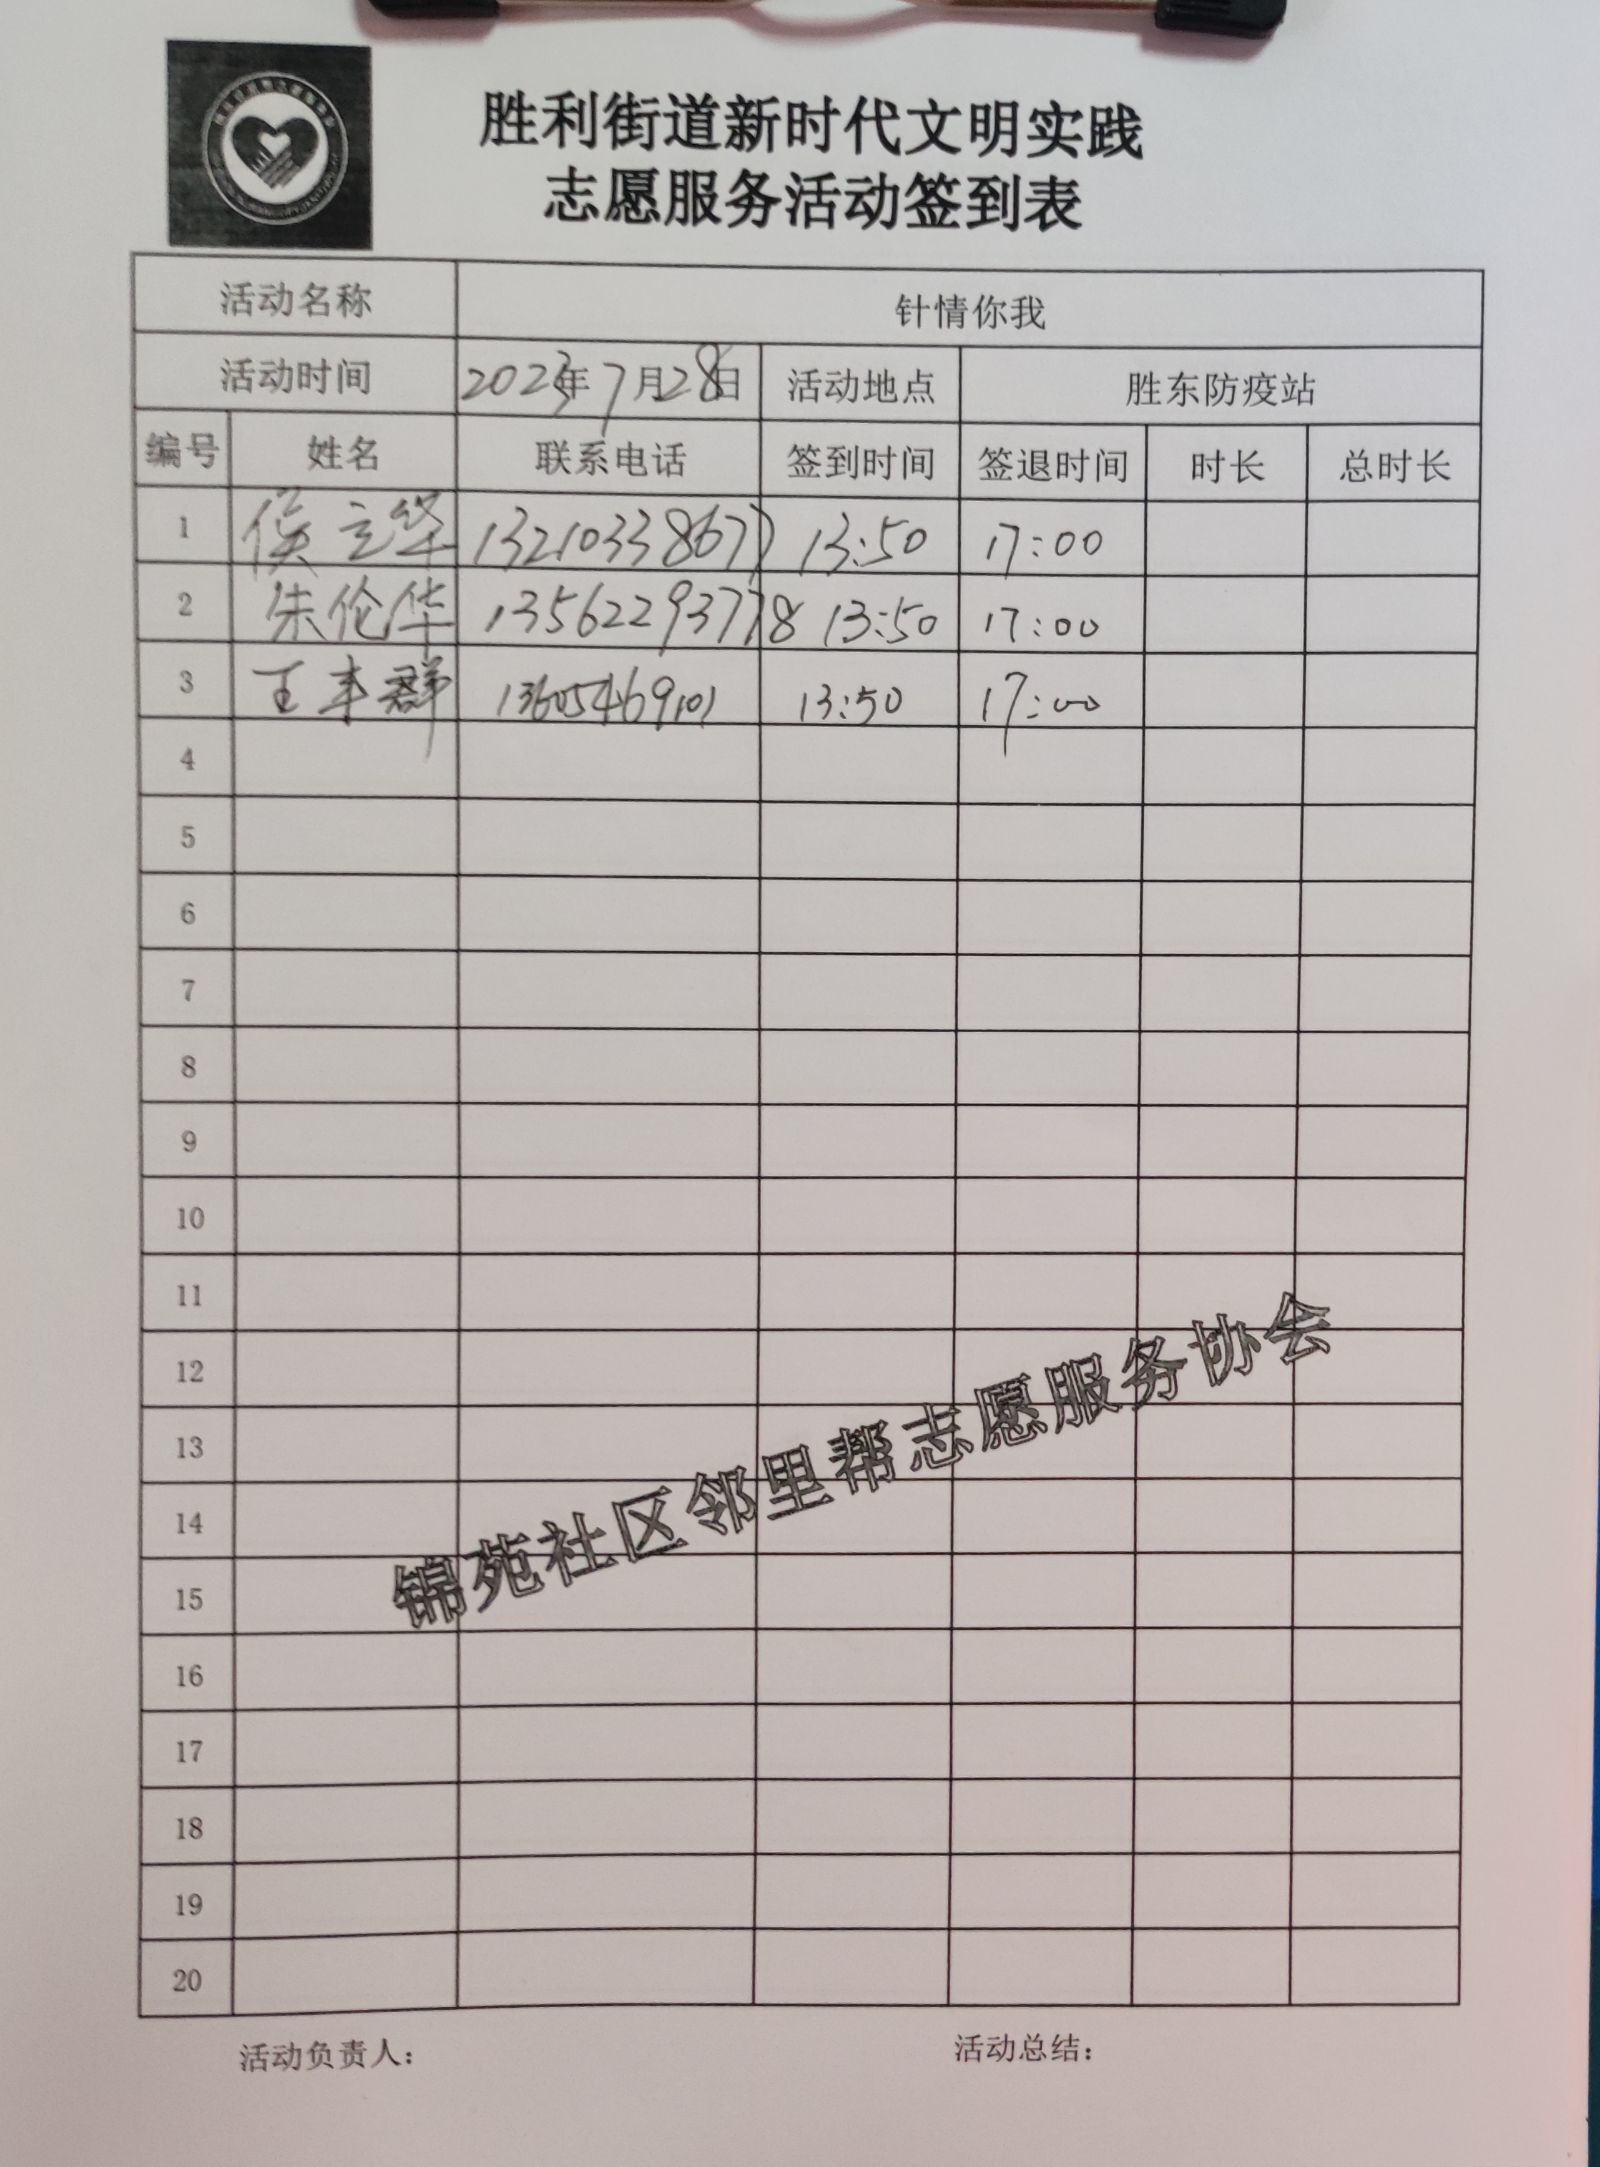 胜利街道新时代文明实践
志愿服务活动签到表
活动名称 针情你我
活动时间 2023年7月28日 活动地点 胜东防疫站
编号 姓名 联系电话 签到时间 签退时间 时长 总时长
1 侯立华 13210338677 13:50 17:00
2 朱伦华 13562293778 13:50 17:00
3 王丰群 13605469101 13:50 17:00
4
5
6
7
8
9
10
11
12
13
14
15
16
17
18
19
20
锦苑社区邻里帮志愿服务协会
活动负责人： 活动总结：